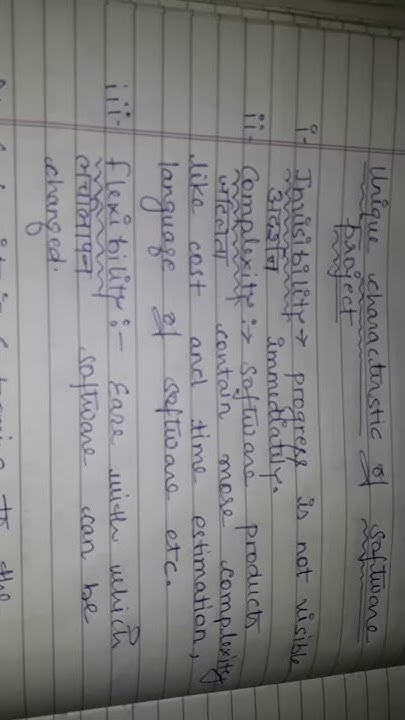 Unique characteristic of software
project
i- Invisibility → progress is not visible
अदृश्यता immediatly.
ii- Complexity :→ software product
जटिलता contain more complexity
like cost and time estimation,
language of software etc.
iii- flexibility :- Ease with which
लचीलापन software can be
changed.